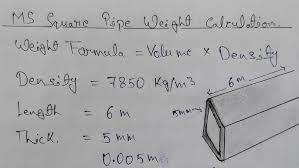 MS Square Pipe Weight Calculation
Weight Formula = Volume × Density
Density = 7850 Kg/m3
6m
Length = 6 m
5mm
Thick. = 5 mm
0.005 m